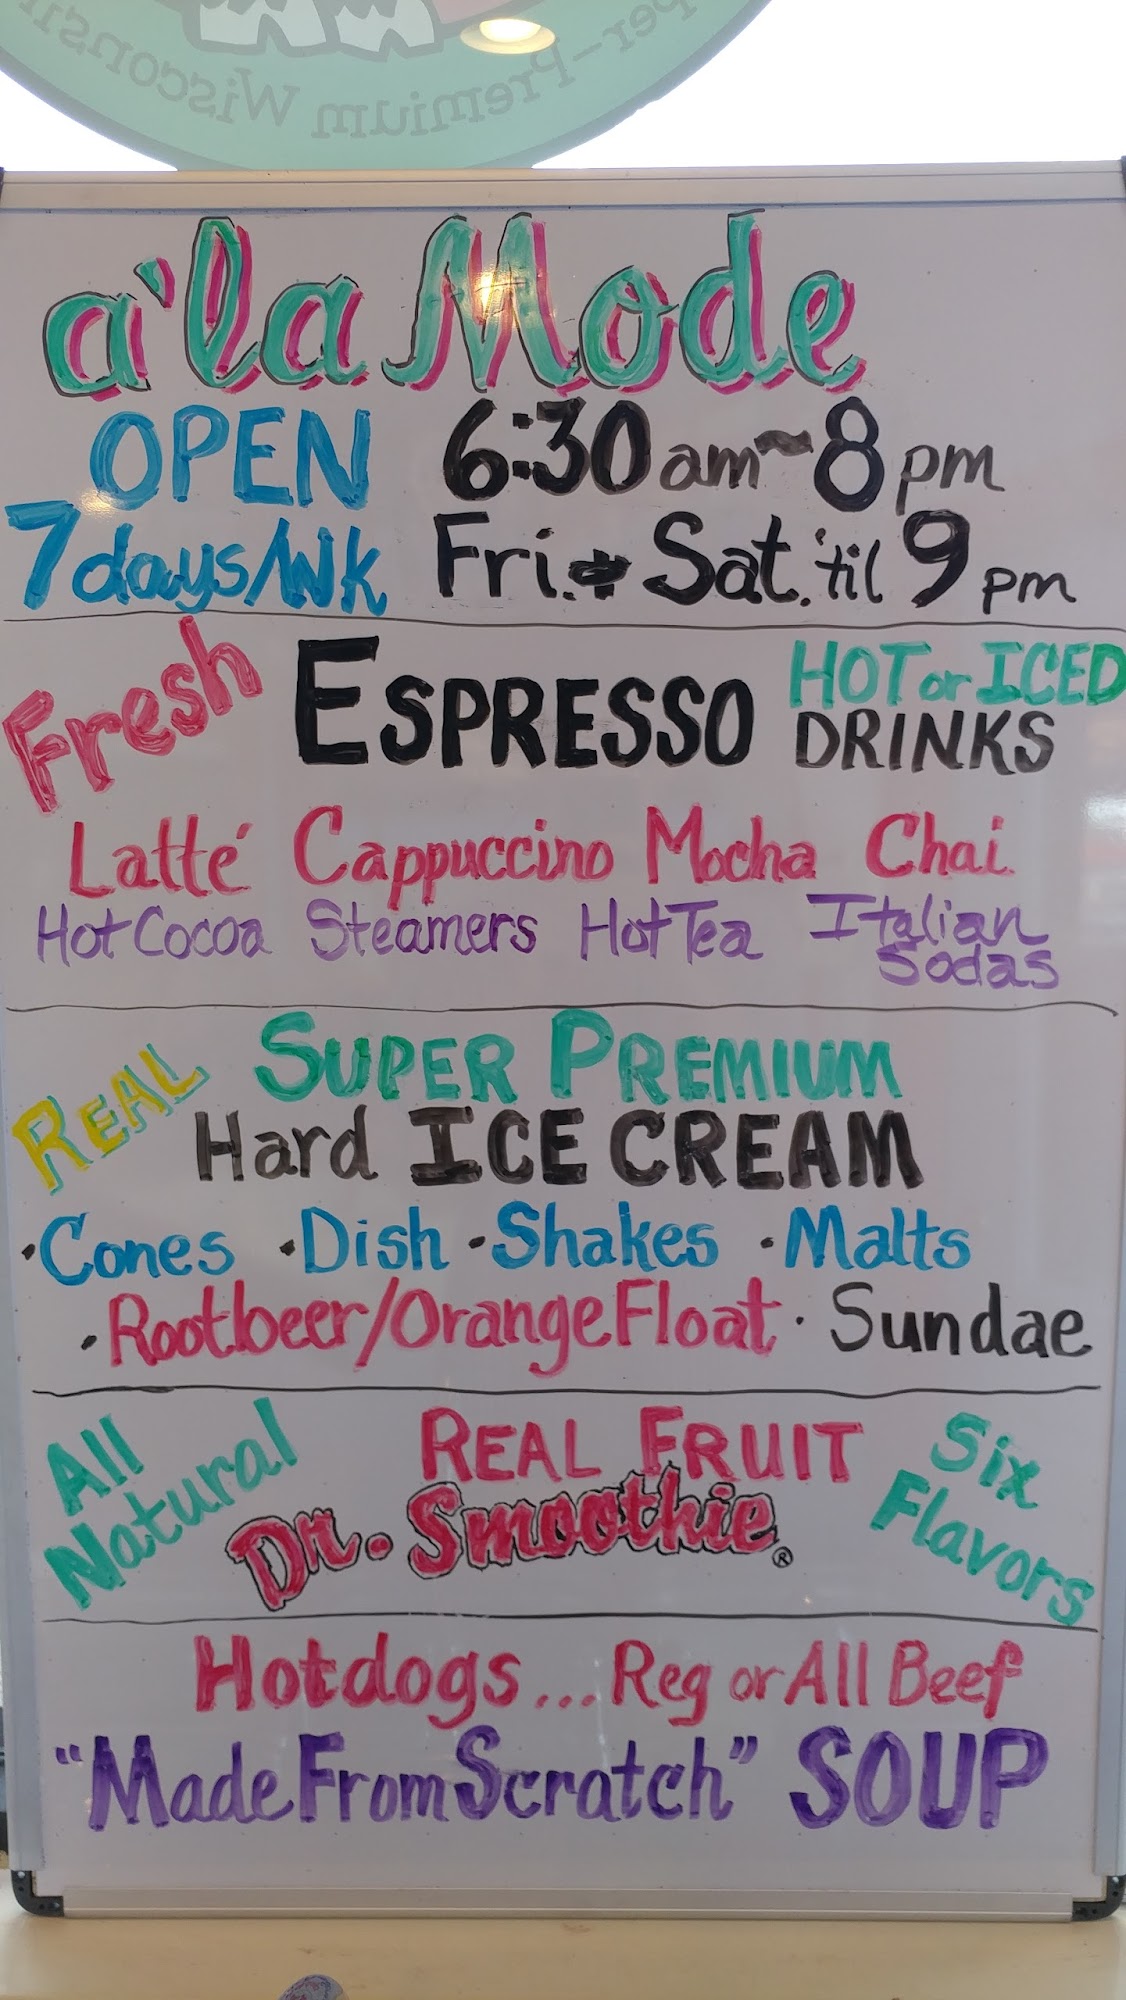 per-Premium Wisconsin
a'la Mode
OPEN 6:30 am~8 pm
7 days/Wk Fri. & Sat. 'til 9 pm
Fresh ESPRESSO HOT or ICED DRINKS
Latté Cappuccino Mocha Chai
Hot Cocoa Steamers Hot Tea Italian Sodas
REAL SUPER PREMIUM
Hard ICE CREAM
·Cones ·Dish ·Shakes ·Malts
·Rootbeer/Orange Float · Sundae
All Natural REAL FRUIT Six Flavors
Dr. Smoothie®
Hotdogs... Reg or All Beef
"Made From Scratch" SOUP